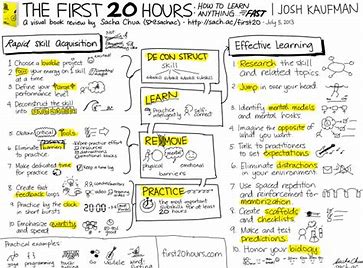 THE FIRST 20 HOURS: HOW TO LEARN ANYTHING FAST | JOSH KAUFMAN
a visual book review by Sacha Chua (@sachac) - http://sach.ac/first20 - July 5, 2013
Rapid Skill Acquisition
1 Choose a lovable project
2 Focus your energy on 1 skill at a time
3 Define your target performance level
4 Deconstruct the skill into subskills
5 Obtain critical tools
6 Eliminate barriers to practice
7 Make dedicated time for practice
8 Create fast feedback loops
9 Practice by the clock in short bursts
10 Emphasize quantity and speed
Practical examples:
yoga
programming
Go
DECONSTRUCT
skill
subskill subskill subskill
LEARN
Practice intelligently
self-correct
REMOVE
physical
mental
emotional
barriers
PRACTICE
the most important subskills for at least 20 hours
first20hours.com
Effective Learning
1 Research the skill and related topics
2 Jump in over your head
3 Identify mental models and mental hooks
4 Imagine the opposite of what you want
5 Talk to practitioners to set expectations
6 Eliminate distractions in your environment
7 Use spaced repetition and reinforcement for memorization
8 Create scaffolds and checklists
9 Make and test predictions
10 Honor your biology